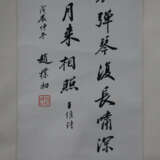 彈琴復長嘯深
月来相照王維诗
戊辰仲冬
趙樸初